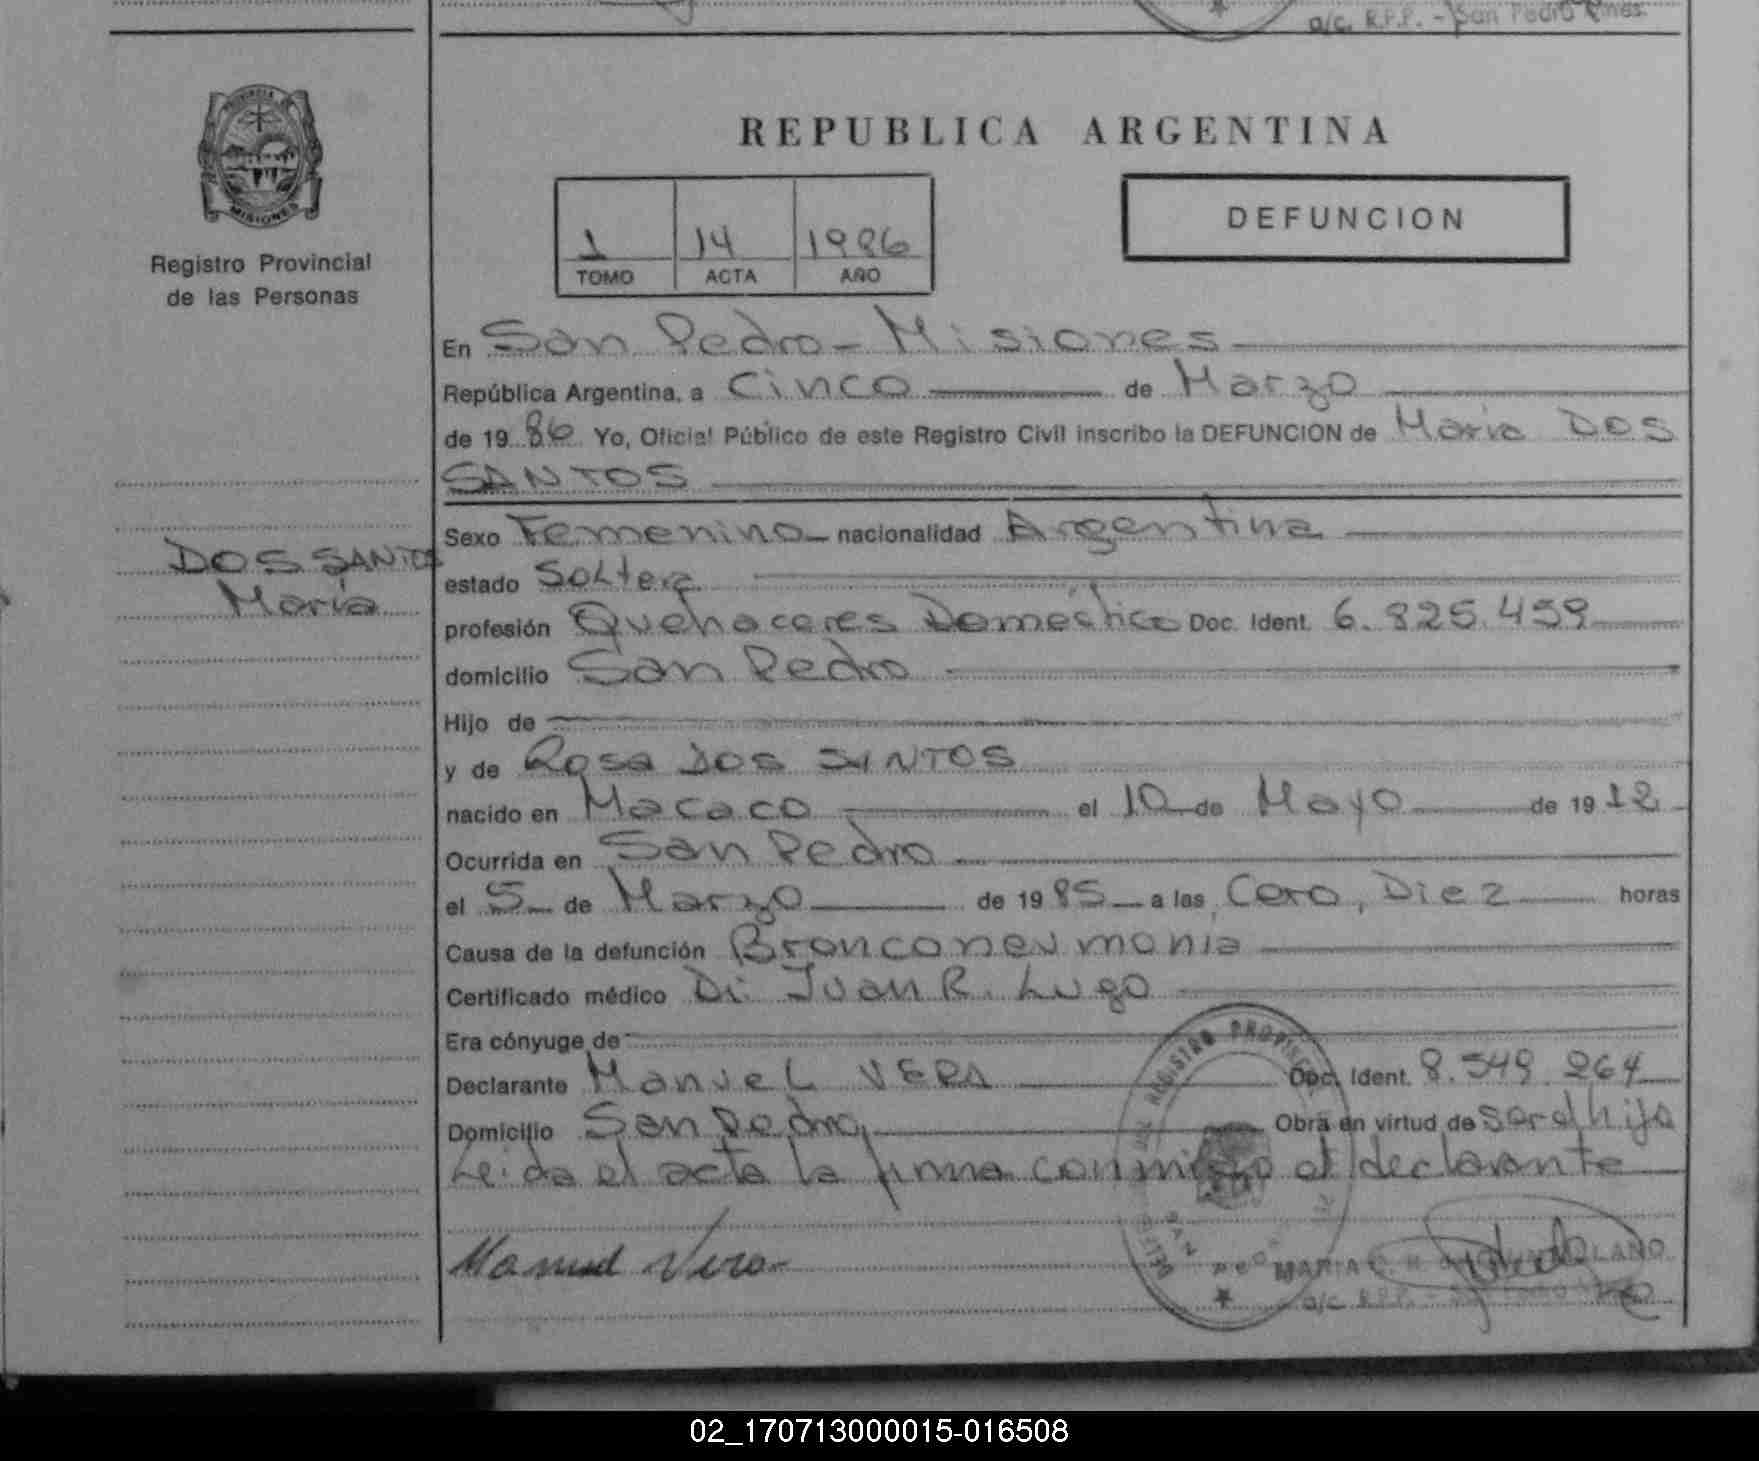 a/c. R.P.P. - San Pedro Mnes.
PROVINCIA DE
MISIONES
Registro Provincial
de las Personas
REPUBLICA ARGENTINA
1 14 1986
TOMO ACTA AÑO
DEFUNCION
En San Pedro - Misiones
República Argentina, a Cinco de Marzo
de 19 86 Yo, Oficial Público de este Registro Civil inscribo la DEFUNCION de Maria DOS
SANTOS
DOS SANTOS
María
Sexo Femenino nacionalidad Argentina
estado Soltera
profesión Quehaceres Domésticos Doc. Ident. 6.825.459
domicilio San Pedro
Hijo de
y de Rosa DOS SANTOS
nacido en Macaco el 10 de Mayo de 19 12
Ocurrida en San Pedro
el 5 de Marzo de 19 85 a las Cero, Diez horas
Causa de la defunción Bronconeumonia
Certificado médico Dr. Juan R. Lugo
Era cónyuge de
Declarante Manuel VERA Doc. Ident. 8.549.264
Domicilio San Pedro Obra en virtud de ser el hijo
Leida el acta la firma conmigo el declarante
REGISTRO PROVINCIAL
SAN PEDRO
Manuel Vera
MARIA
a/c R.P.P. -
02_170713000015-016508